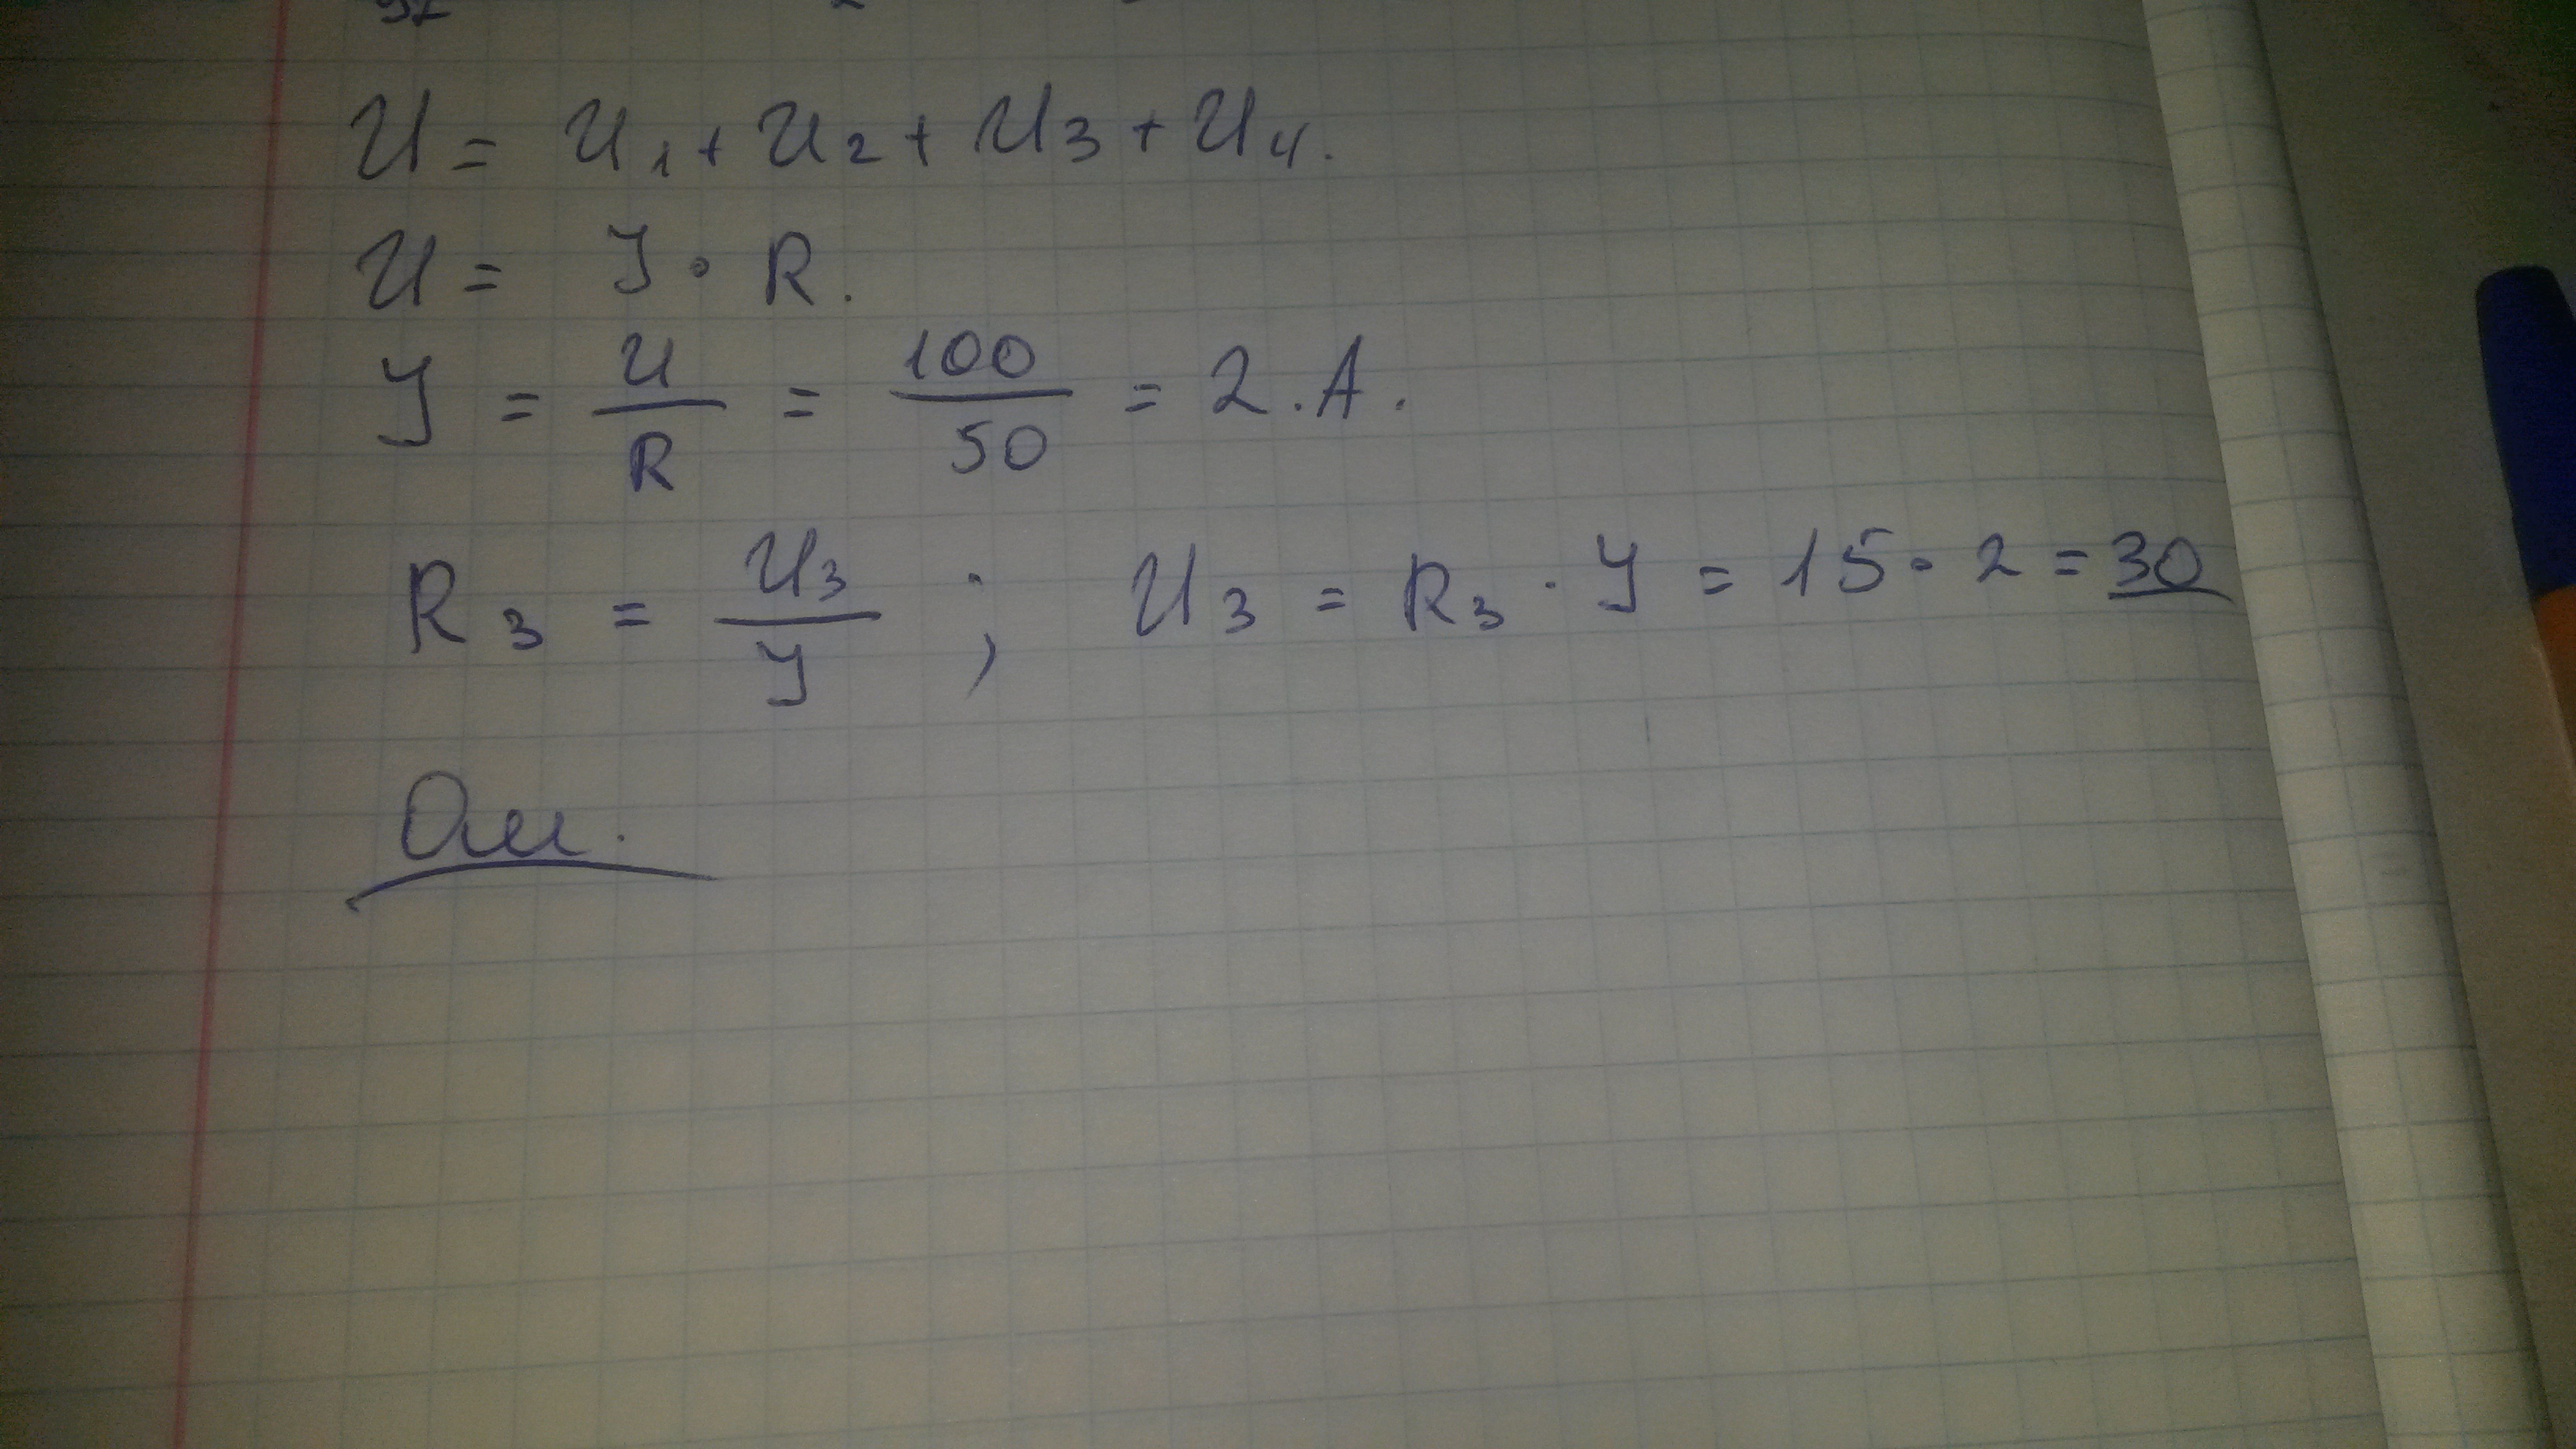 U = U1 + U2 + U3 + U4.
U = J · R.
J = U/R = 100/50 = 2.A.
R3 = U3/J ; U3 = R3 · J = 15 · 2 = 30